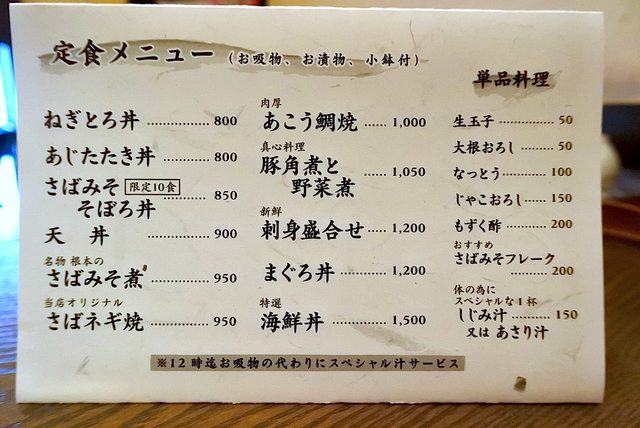 定食メニュー（お吸物、お漬物、小鉢付）
ねぎとろ丼 ……………… 800
あじたたき丼 …………… 800
さばみそ 限定10食
そぼろ丼 ………… 850
天　丼 ……………… 900
名物 根本の
さばみそ煮 …………… 950
当店オリジナル
さばネギ焼 …………… 950
肉厚
あこう鯛焼 …… 1,000
真心料理
豚角煮と
野菜煮 …… 1,050
新鮮
刺身盛合せ …… 1,200
まぐろ丼 ………… 1,200
特選
海鮮丼 …………… 1,500
単品料理
生玉子 …………… 50
大根おろし ……… 50
なっとう ………… 100
じゃこおろし …… 150
もずく酢 ………… 200
おすすめ
さばみそフレーク
………… 200
体の為に
スペシャルな1杯
しじみ汁 ……… 150
又は あさり汁
※12時迄お吸物の代わりにスペシャル汁サービス